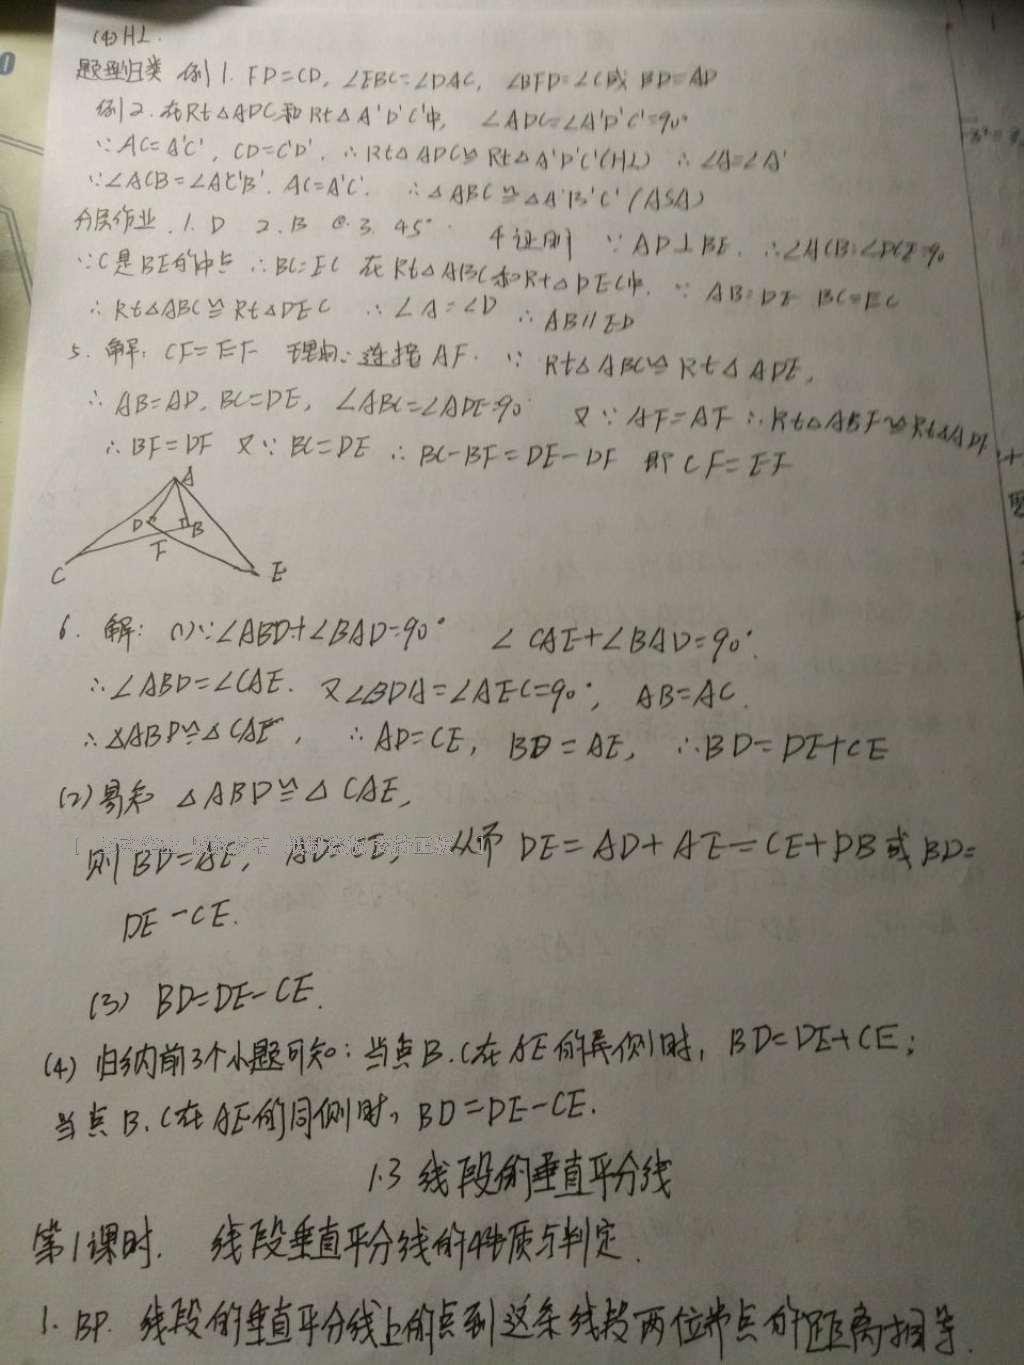 (4) HL.
题型归类 例1. FD=CD, ∠EBC=∠DAC, ∠BFD=∠C或 BD=AD
例2. 在Rt△ADC和Rt△A'D'C'中, ∠ADC=∠A'D'C'=90°
∵AC=A'C', CD=C'D', ∴Rt△ADC≌Rt△A'D'C'(HL) ∴∠A=∠A'
∵∠ACB=∠A'C'B'. AC=A'C'. ∴△ABC≌△A'B'C'(ASA)
分层作业. 1. D 2. B 3. 45° 4 证明 ∵AD⊥BE. ∴∠ACB=∠DCE=90
∵C是BE的中点 ∴BC=EC 在Rt△ABC和Rt△DEC中. ∵ AB=DE BC=EC
∴Rt△ABC≌Rt△DEC ∴∠A=∠D ∴AB∥ED
5. 解: CF=EF 理由: 连接AF. ∵ Rt△ABC≌Rt△ADE,
∴AB=AD, BC=DE, ∠ABC=∠ADE=90° 又∵AF=AF ∴Rt△ABF≌Rt△ADF
∴BF=DF 又∵BC=DE ∴BC-BF=DE-DF 即CF=EF
A
D B
F
C E
6. 解: (1)∵∠ABD+∠BAD=90° ∠CAE+∠BAD=90°.
∴∠ABD=∠CAE. 又∠BDA=∠AEC=90°, AB=AC.
∴△ABD≌△CAE, ∴AD=CE, BD=AE, ∴BD=DE+CE
(2)易知 △ABD≌△CAE,
则BD=AE, AD=CE, 从而 DE=AD+AE=CE+DB或BD=
DE-CE.
(3) BD=DE-CE.
(4) 归纳前3个小题可知: 当点B.C在AE的异侧时, BD=DE+CE;
当点B.C在AE的同侧时, BD=DE-CE.
1.3 线段的垂直平分线
第1课时. 线段垂直平分线的性质与判定.
1. BP. 线段的垂直平分线上的点到这条线段两位端点的距离相等.